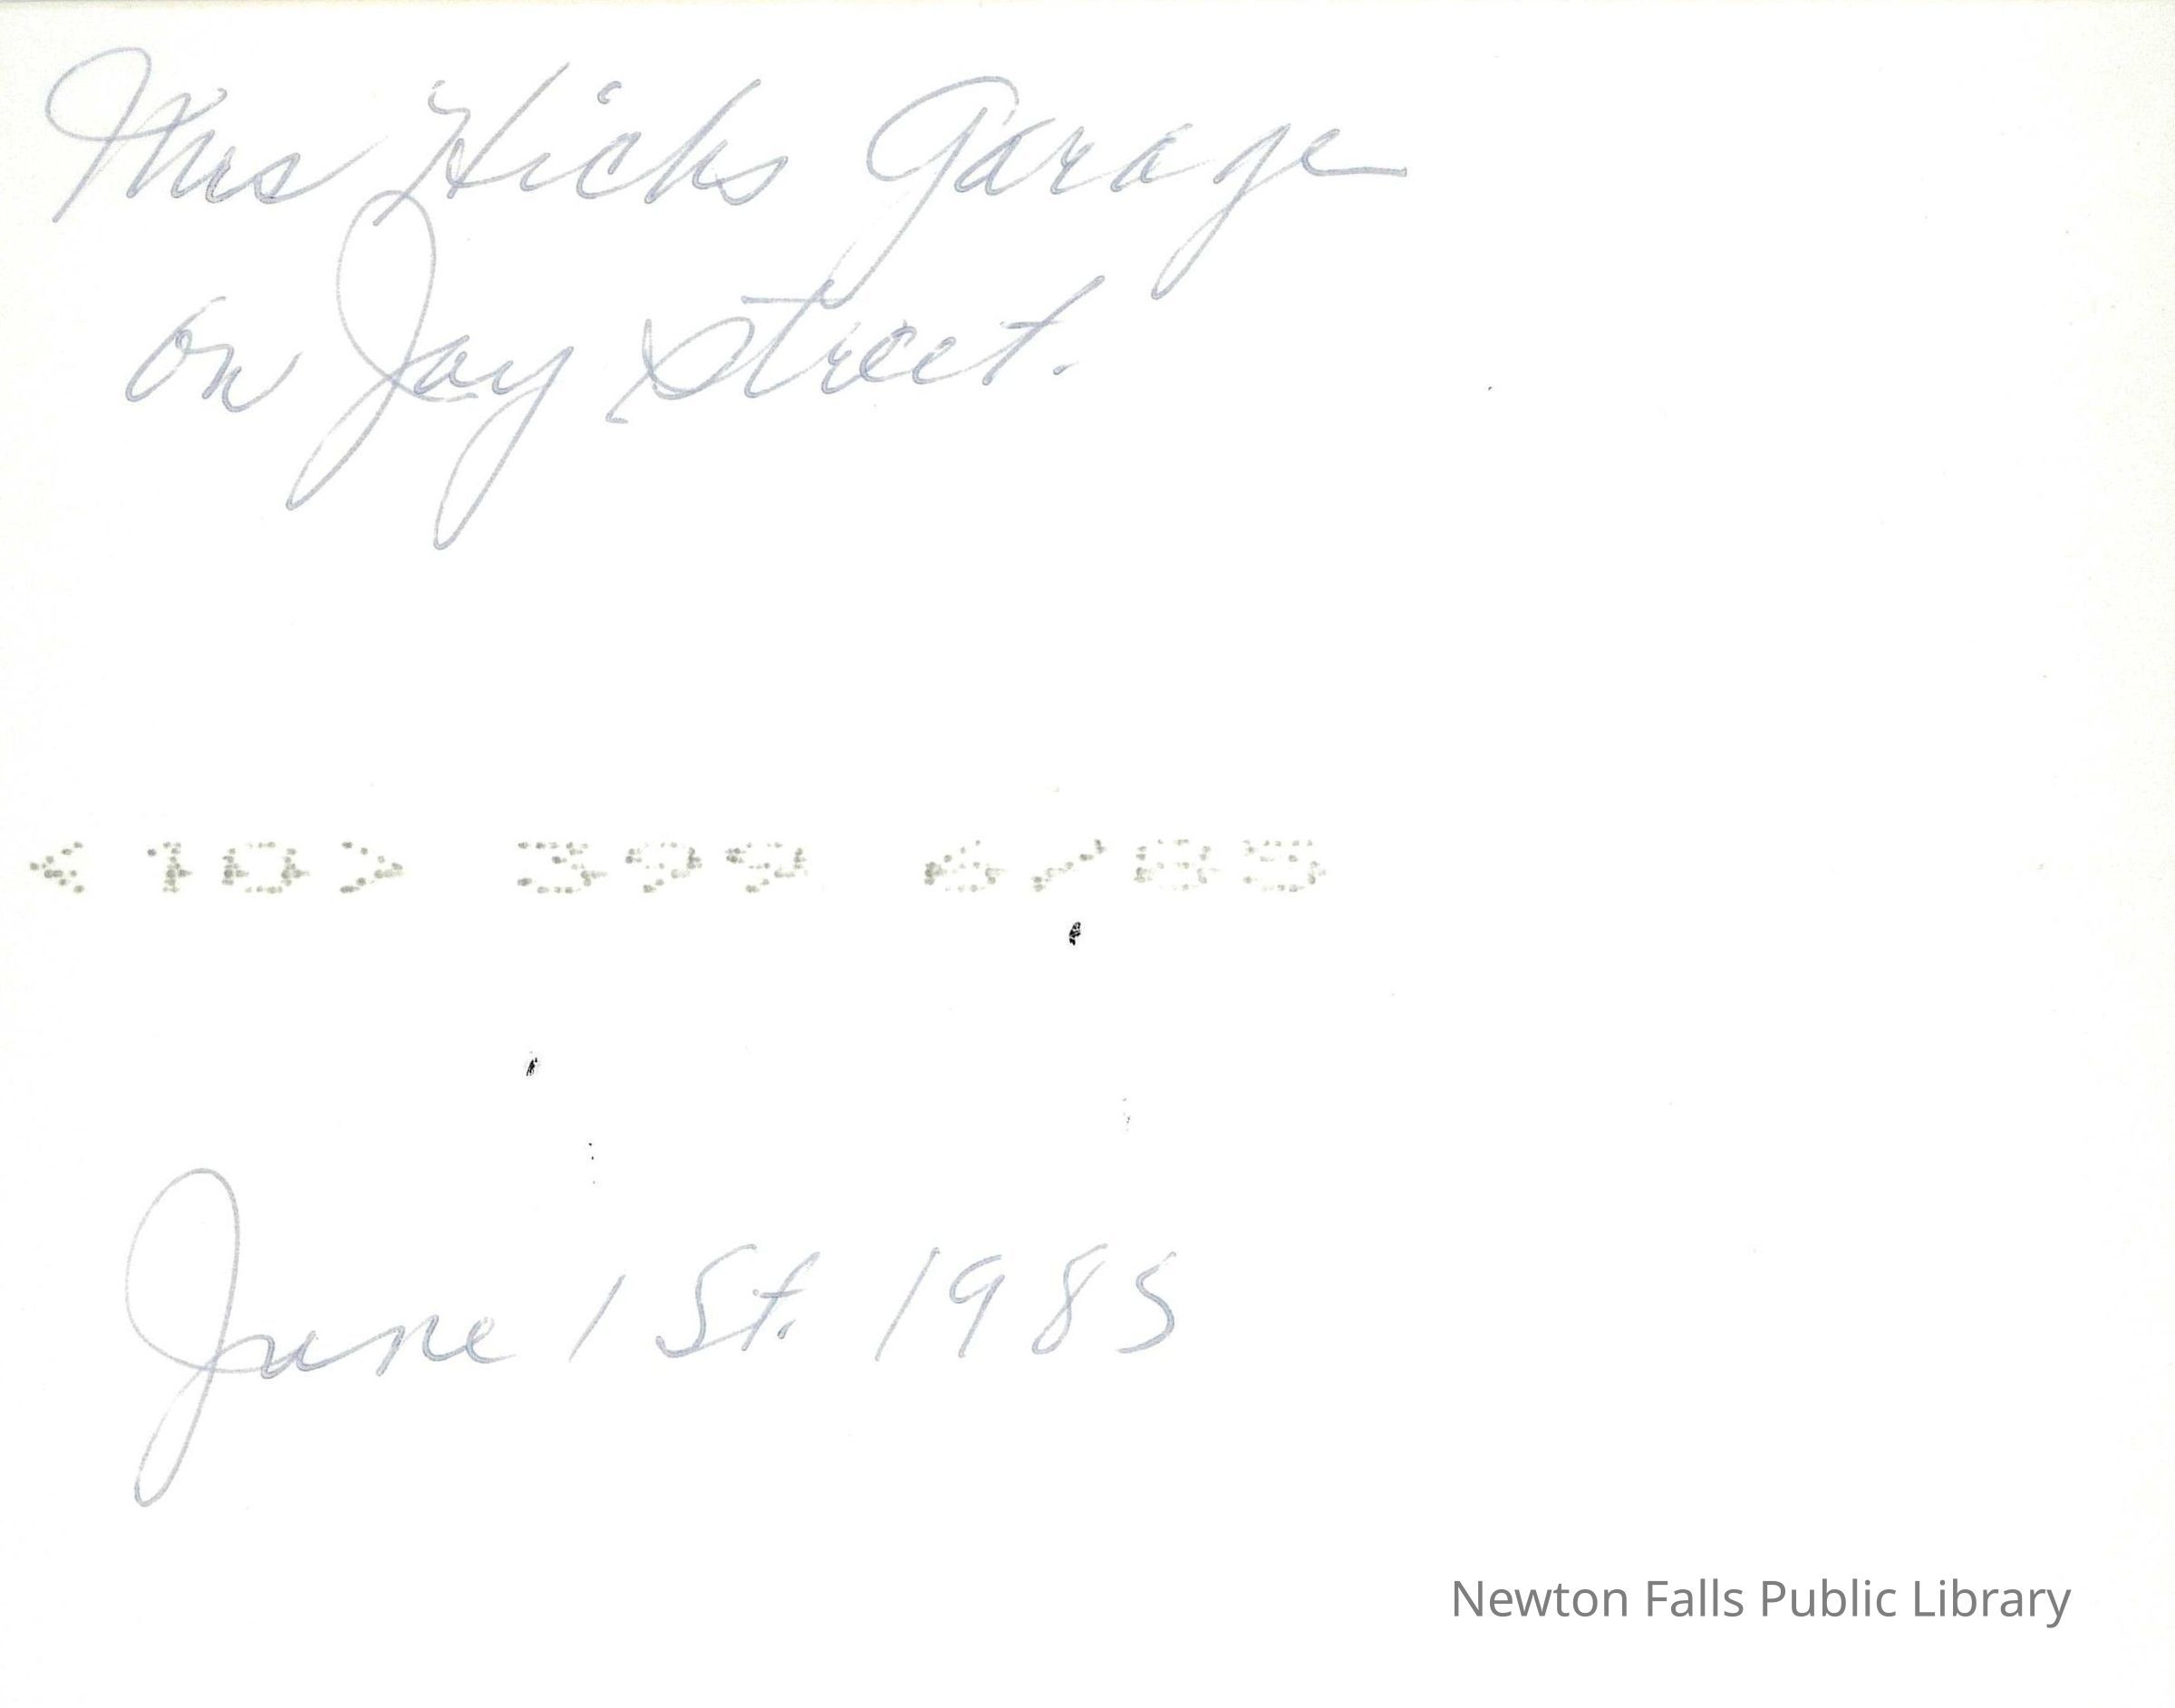 Mrs Hicks Garage
on Jay Street.
< 10 > 399 6/85
June 1 St. 1985
Newton Falls Public Library